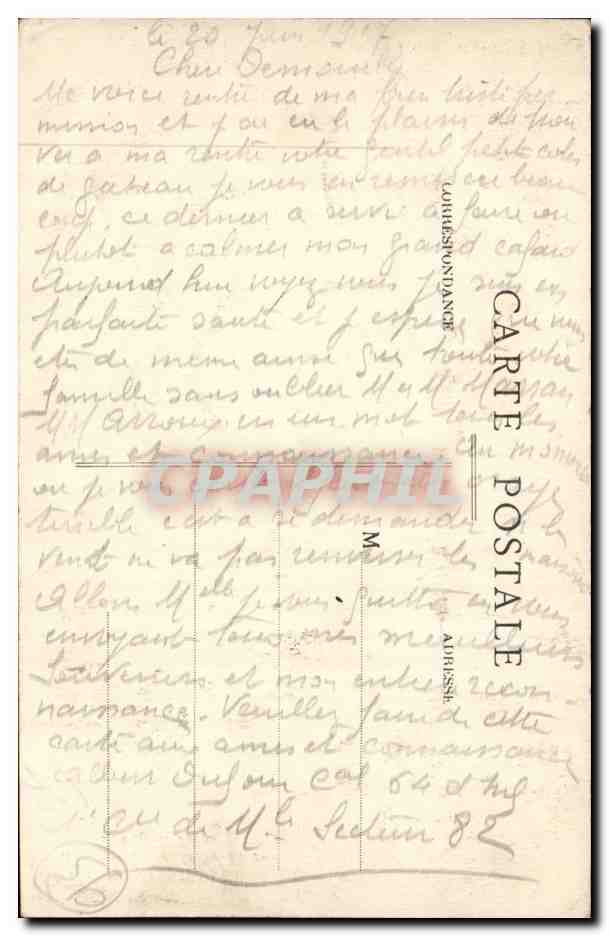 Le 20 Juin 1917
Chère Demoiselle
Me voici rentré de ma bien triste per-
mission et j'ai eu le plaisir de trou
ver a ma rentré votre gentil petit colis
de gateau je vous en remercie beau
coup, ce dernier a servi a faire ou
plutot a calmer mon grand cafard
Aujourd hui voyez vous je suis en
parfaite santé et j'espère que vous
etes de meme ainsi que toute votre
famille sans oublier M et Mme
M en un mot tous les
amis et connaissances. Au moment
ou je vous
terrible c'est a se demander si le
vent ne va pas renverser les maisons
Allons Melle je vous quitte en vous
envoyant tous mes meilleurs
Souvenirs et mon entière recon-
naissance. Veuillez faire de cette
carte aux amis et connaissance
Dufour Cal 64 d'Inf
Cie de Mle Secteur 82
CORRESPONDANCE
CARTE POSTALE
M
ADRESSE
CPAPHIL